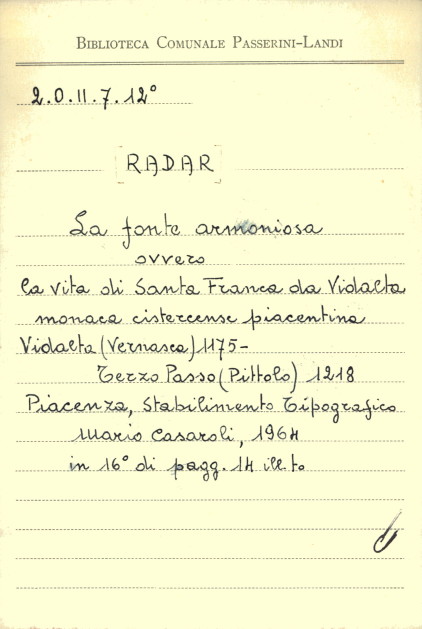 BIBLIOTECA COMUNALE PASSERINI-LANDI
2.0.II.7.12°
[RADAR]
La fonte armoniosa
ovvero
la vita di Santa Franca da Vidalta
monaca cistercense piacentina
Vidalta (Vernasca) 1175-
Terzo Passo (Pittolo) 1218
Piacenza, Stabilimento Tipografico
Mario Casaroli, 1964
in 16° di pagg. 14 ill.to